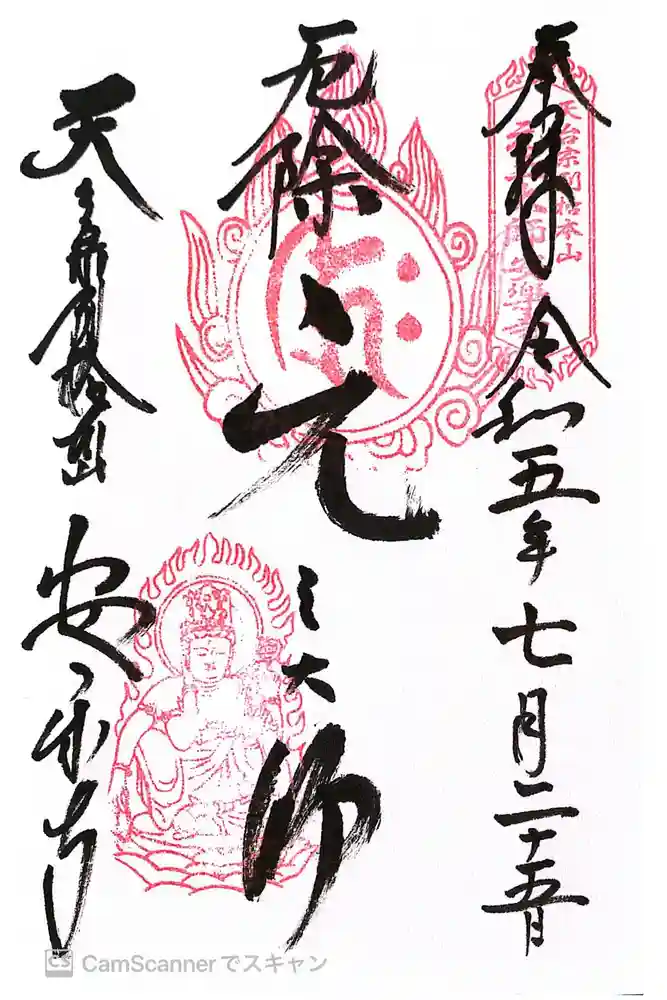 奉拝 令和五年七月二十五日
天台宗別格本山
元三大師安楽寺
厄除 元三大師
天台宗別格本山 安楽寺
CS CamScannerでスキャン